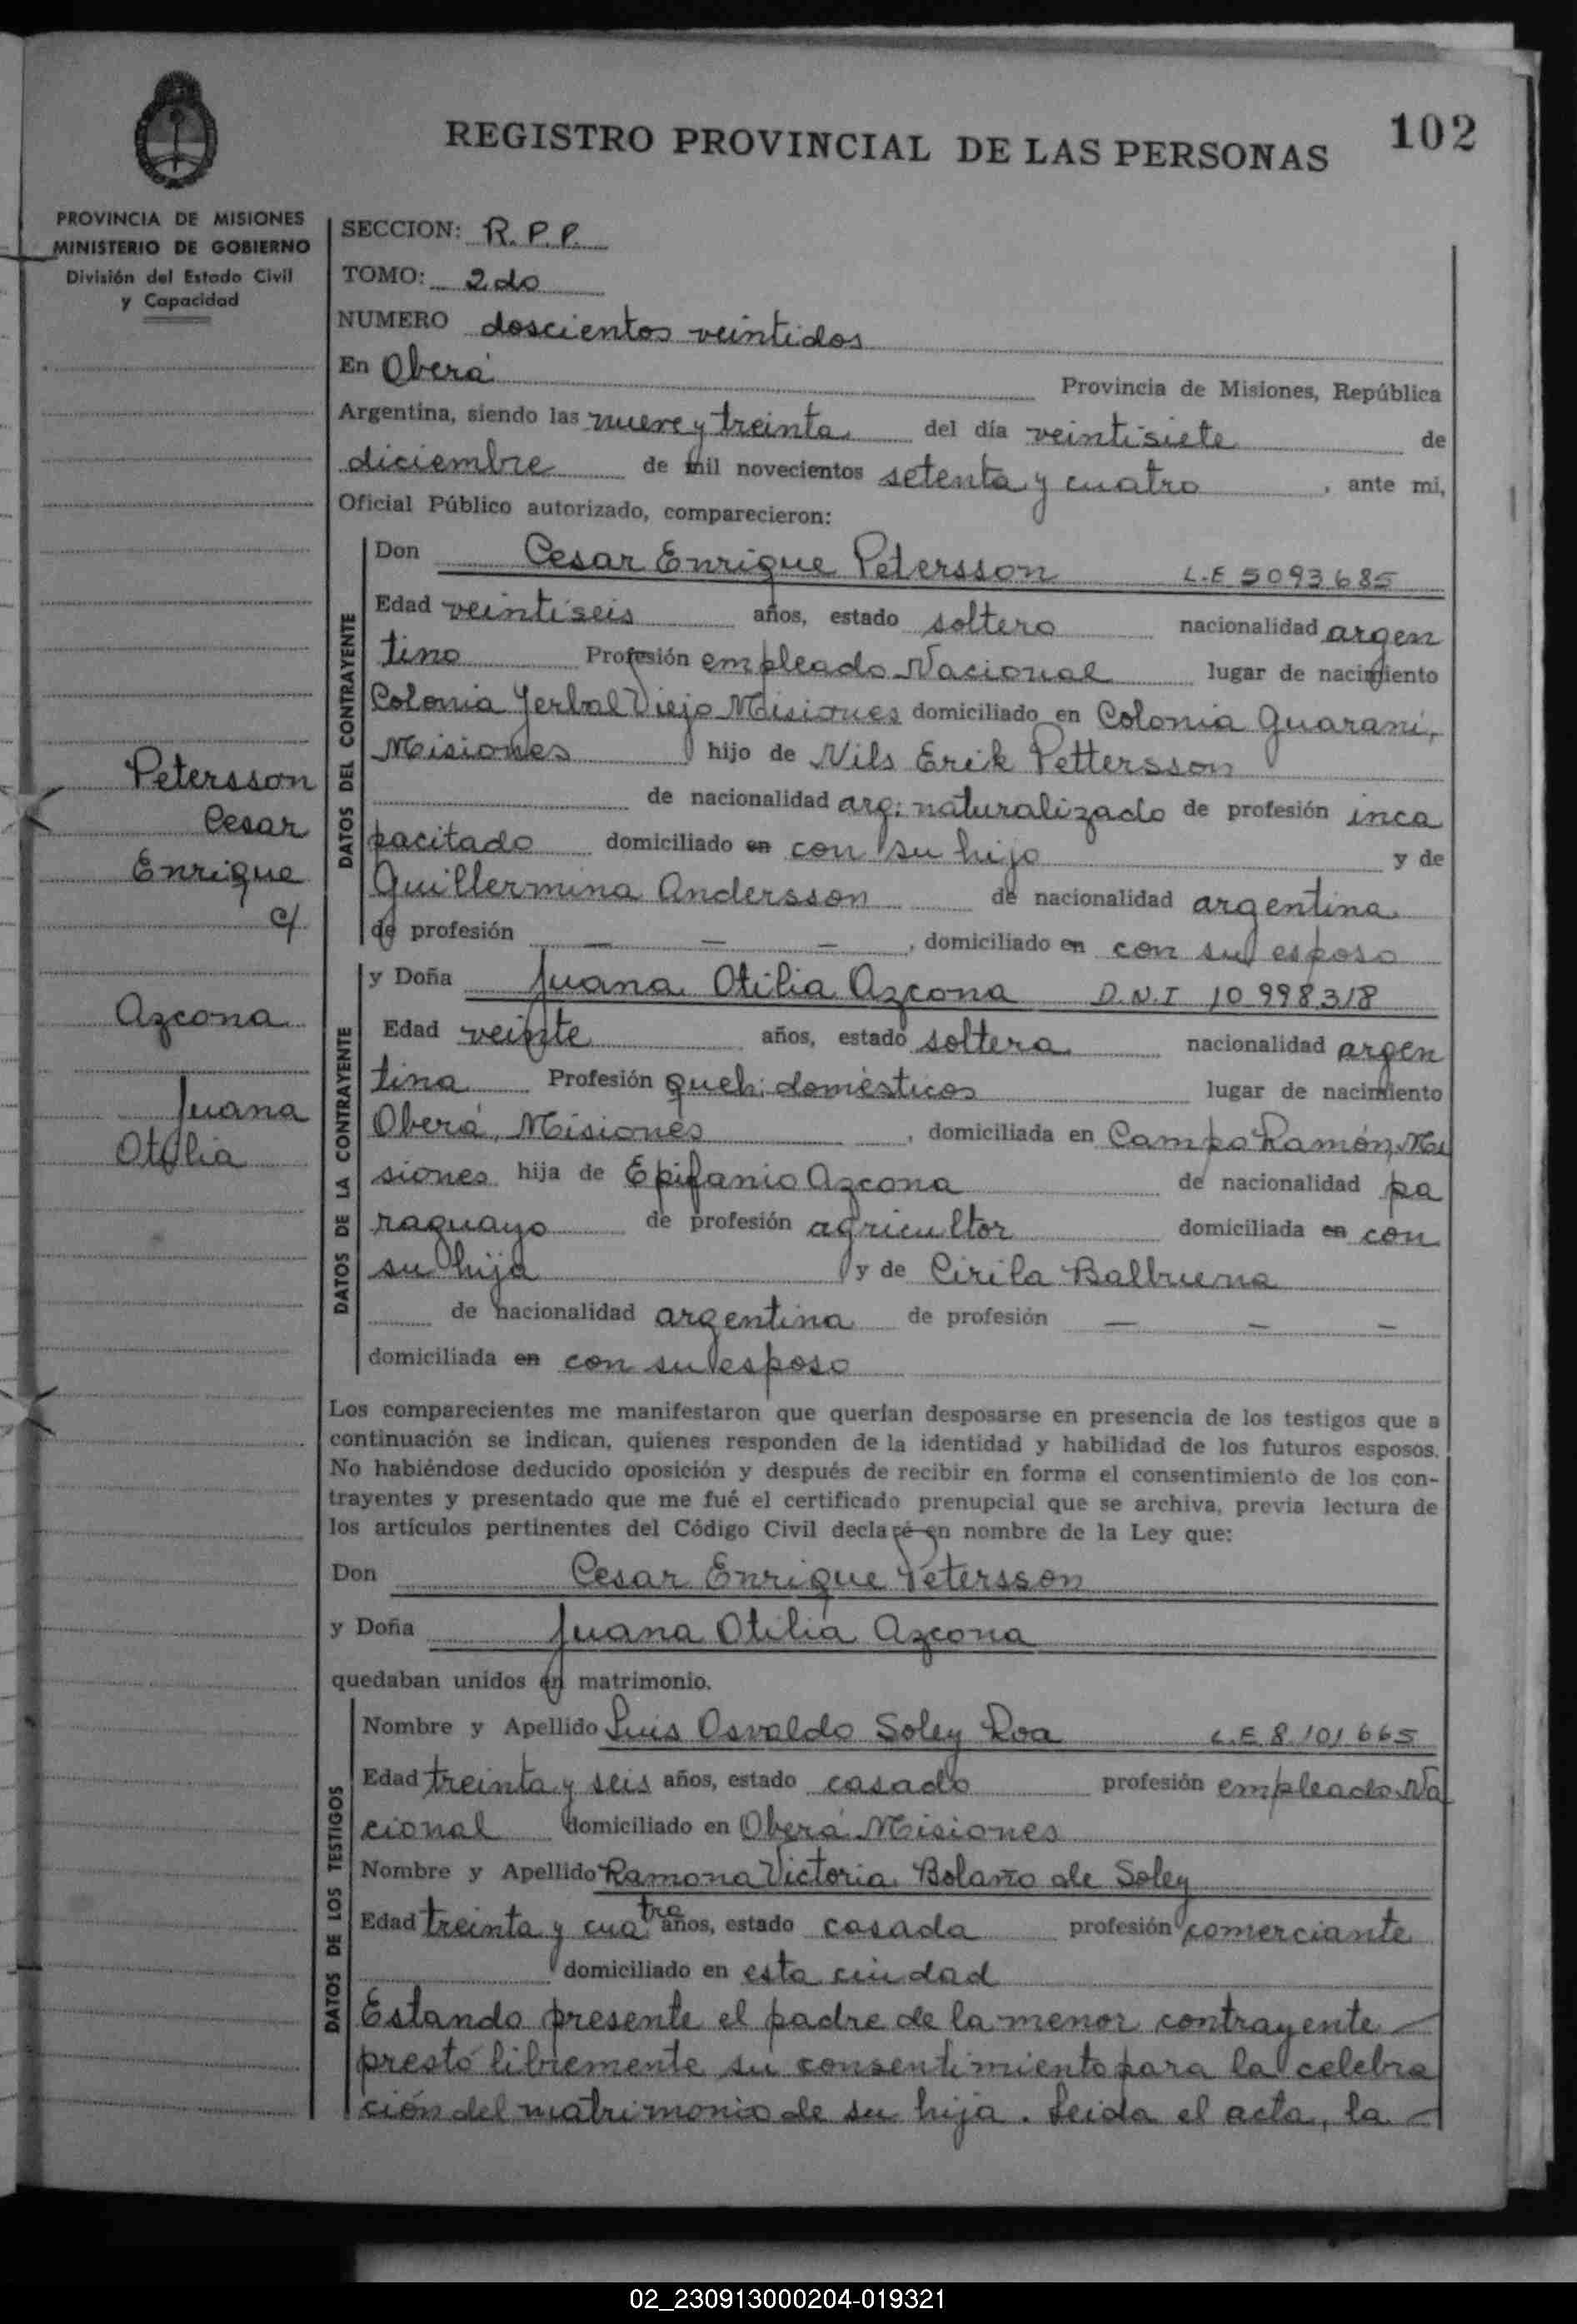 102
REGISTRO PROVINCIAL DE LAS PERSONAS
PROVINCIA DE MISIONES
MINISTERIO DE GOBIERNO
División del Estado Civil
y Capacidad
SECCION: R.P.P.
TOMO: 2do
NUMERO doscientos veintidos
En Oberá Provincia de Misiones, República
Argentina, siendo las nueve y treinta del día veintisiete de
diciembre de mil novecientos setenta y cuatro, ante mi,
Oficial Público autorizado, comparecieron:
Petersson
Cesar
Enrique
c/
Azcona
Juana
Otilia
DATOS DEL CONTRAYENTE
Don Cesar Enrique Petersson L.E 5093685
Edad veintiseis años, estado soltero nacionalidad argen
tino Profesión empleado Nacional lugar de nacimiento
Colonia Yerbal Viejo Misiones domiciliado en Colonia Guaraní,
Misiones hijo de Nils Erik Pettersson
de nacionalidad arg. naturalizado de profesión inca
pacitado domiciliado en con su hijo y de
Guillermina Andersson de nacionalidad argentina
de profesión — — —, domiciliado en con su esposo
DATOS DE LA CONTRAYENTE
y Doña Juana Otilia Azcona D.N.I 10998318
Edad veinte años, estado soltera nacionalidad argen
tina Profesión queh. domésticos lugar de nacimiento
Oberá, Misiones, domiciliada en Campo Ramón, Mi
siones hija de Epifanio Azcona de nacionalidad pa
raguayo de profesión agricultor domiciliada en con
su hija y de Cirila Balbuena
de nacionalidad argentina de profesión — — —
domiciliada en con su esposo
Los comparecientes me manifestaron que querían desposarse en presencia de los testigos que a
continuación se indican, quienes responden de la identidad y habilidad de los futuros esposos.
No habiéndose deducido oposición y después de recibir en forma el consentimiento de los con-
trayentes y presentado que me fué el certificado prenupcial que se archiva, previa lectura de
los artículos pertinentes del Código Civil declaré en nombre de la Ley que:
Don Cesar Enrique Petersson
y Doña Juana Otilia Azcona
quedaban unidos en matrimonio.
DATOS DE LOS TESTIGOS
Nombre y Apellido Luis Osvaldo Soley Roa L.E 8.101.665
Edad treinta y seis años, estado casado profesión empleado Na
cional domiciliado en Oberá Misiones
Nombre y Apellido Ramona Victoria Bolaño de Soley
Edad treinta y cuatro años, estado casada profesión comerciante
domiciliado en esta ciudad
Estando presente el padre de la menor contrayente
prestó libremente su consentimiento para la celebra
ción del matrimonio de su hija. Leida el acta, la
02_230913000204-019321